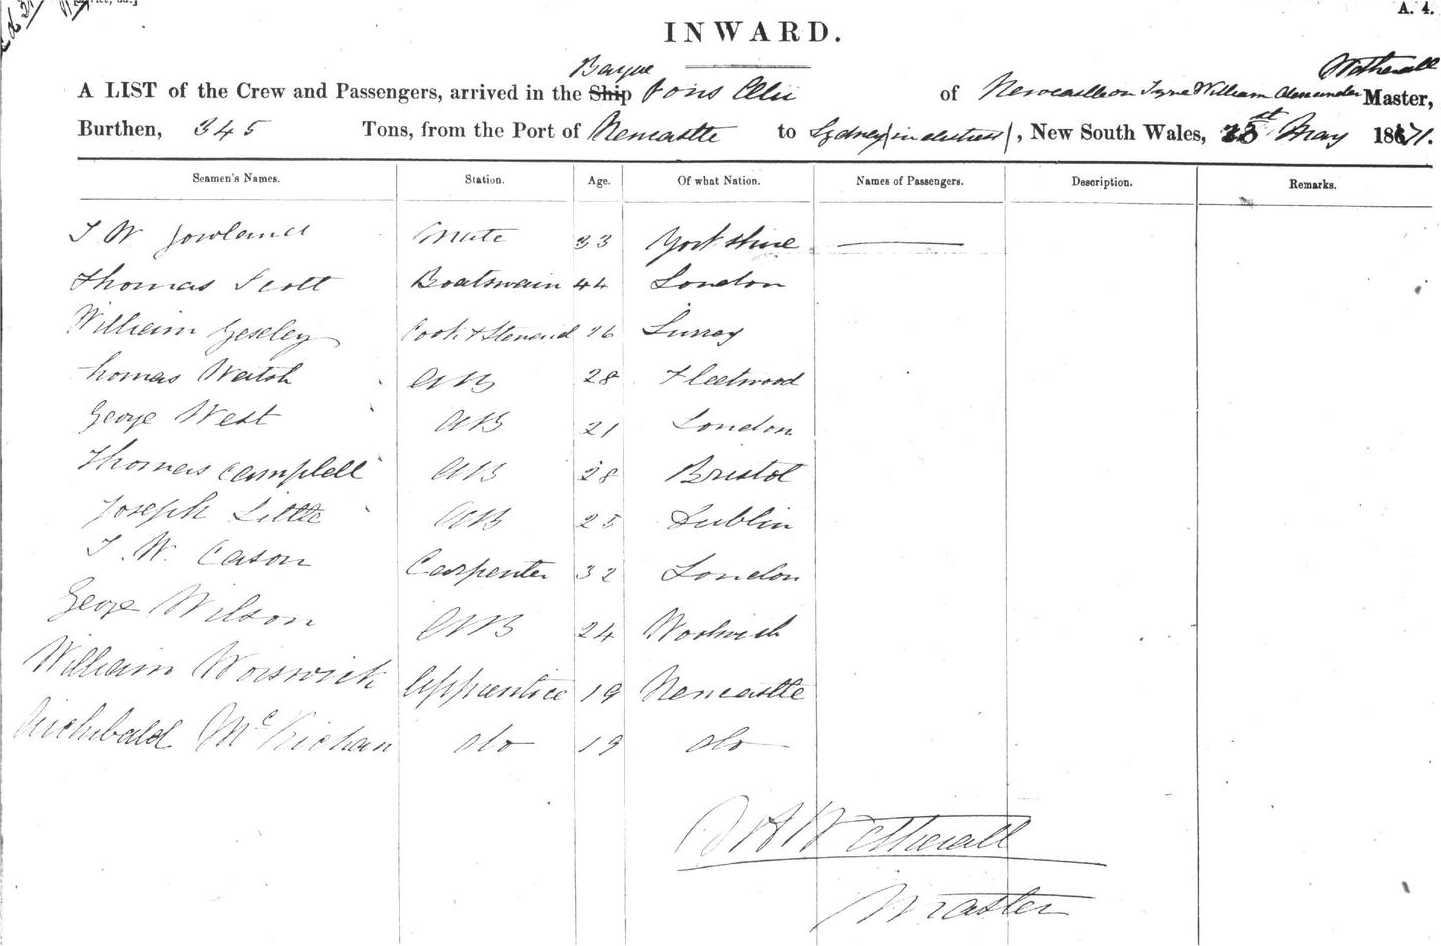 A. 4.
INWARD.
Barque Wetherall
A LIST of the Crew and Passengers, arrived in the Ship Pons Ælii of Newcastle on Tyne William Alexander Master,
Burthen, 345 Tons, from the Port of Newcastle to Sydney (in distress), New South Wales, st May 1871.
Seamen's Names. Station. Age. Of what Nation. Names of Passengers. Description. Remarks.
J W Jowland Mate 33 Yorkshire
Thomas Scott Boatswain 44 London
William Geseley Cook & Steward 26 Surrey
Thomas Welsh AB 28 Fleetwood
George West AB 21 London
Thomas Campbell AB 28 Bristol
Joseph Little AB 25 Dublin
J. W. Cason Carpenter 32 London
George Wilson AB 24 Woolwich
William Worswick Apprentice 19 Newcastle
Archibald McKichan do 19 do
W A Wetherall
Master